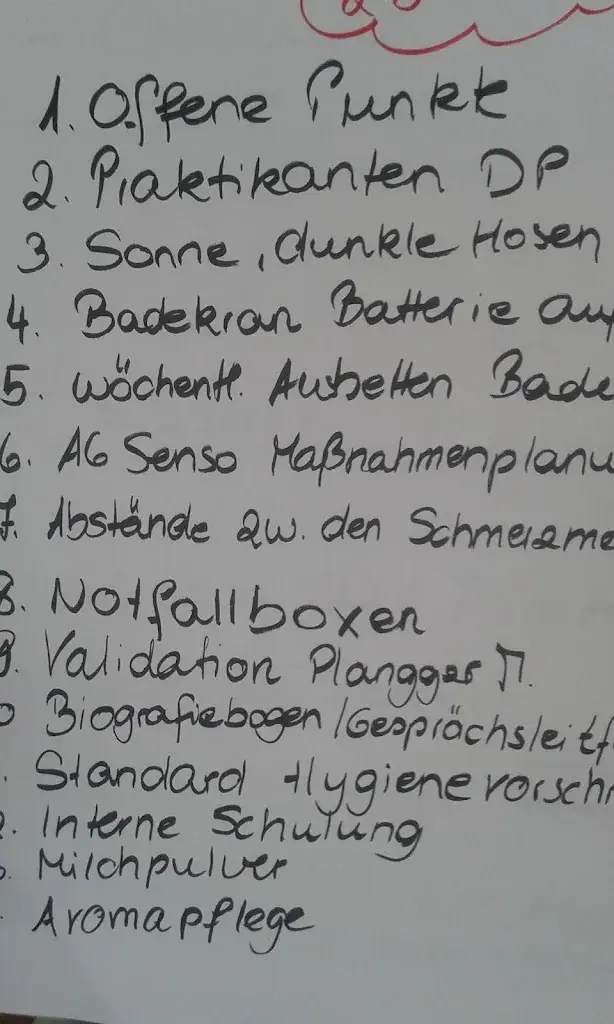 1. Offene Punkte
2. Praktikanten DP
3. Sonne, dunkle Hosen
4. Badekran Batterie auf
5. wöchentl. Ausbetten Bade
6. AG Senso Maßnahmenplanu
7. Abstände zw. den Schmerzme
8. Notfallboxen
9. Validation Plangger M.
0 Biografiebogen/Gesprächsleitf
. Standard Hygienevorschr
2. Interne Schulung
3. Milchpulver
. Aromapflege